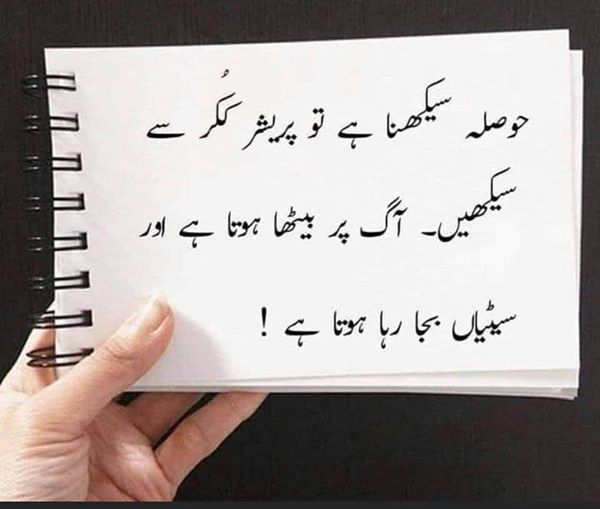 حوصلہ سیکھنا ہے تو پریشر کُکر سے
سیکھیں۔ آگ پر بیٹھا ہوتا ہے اور
سیٹیاں بجا رہا ہوتا ہے !